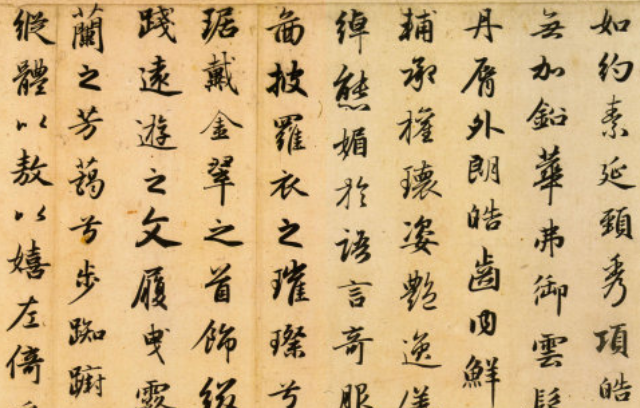 如約素延頸秀項皓
無加鉛華弗御雲髻
丹脣外朗皓齒内鮮
輔承權瓌姿艷逸儀
綽態媚於語言奇服
啚披羅衣之璀璨兮
琚戴金翠之首飾綴
踐遠遊之文履曳霧
蘭之芳藹兮步踟躕
縱體以敖以嬉左倚